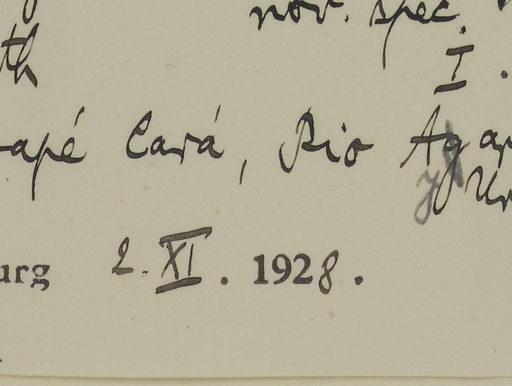 nov. spec.
th I.
apé Cará, Rio Agar
urg 2. XI. 1928.